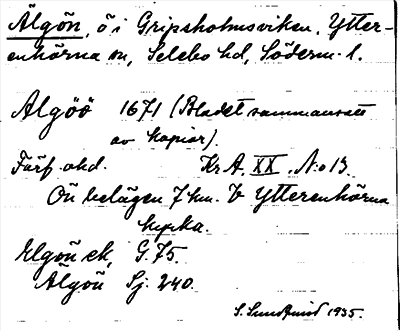 Älgön, ö i Gripsholmsviken, Ytter-
enhörna sn, Selebo hd, Söderm. l.
Älgöö 1671 (Bladet sammansatt
av kopior).
Färf. akd. Kr A. XX. N:o 13.
Ön belägen 7 km. V Ytterenhörna
kyrka.
Elgön ek, G. 75.
Älgön Sj. 240.
S. Sundquist 1935.